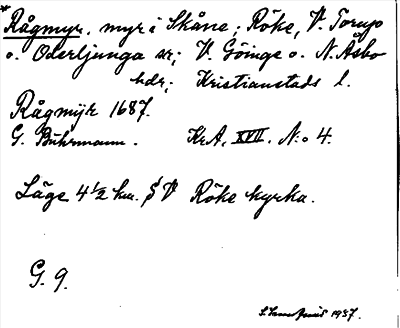 *Rågmyr, myr i Skåne; Röke, V. Torup
o. Oderljunga sr; V. Göinge o. N. Åsbo
hdr; Kristianstads l.
Rågmÿr 1687.
G. Buhrmann. KrA, XVII. N:o 4.
Läge 4 1/2 km. S V Röke kyrka.
G. 9.
1937.